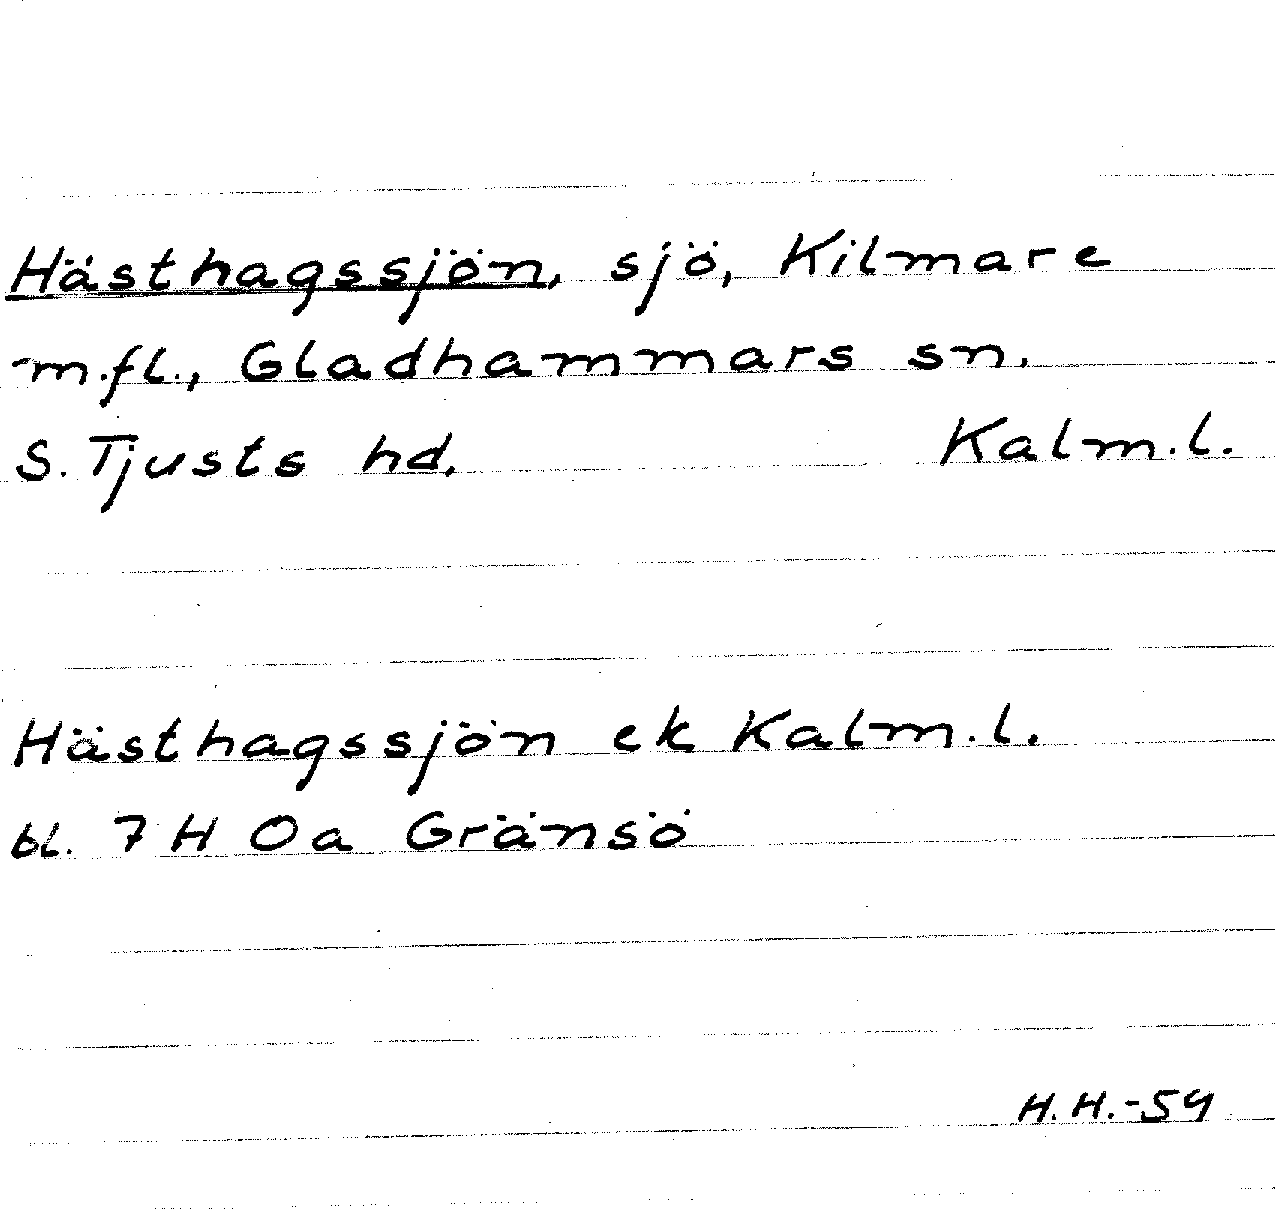 Hästhagssjön, sjö, Kilmare
m.fl., Gladhammars sn.
S. Tjusts hd. Kalm.l.
Hästhagssjön ek Kalm.l.
bl. 7 H Oa Gränsö
H.H.-59